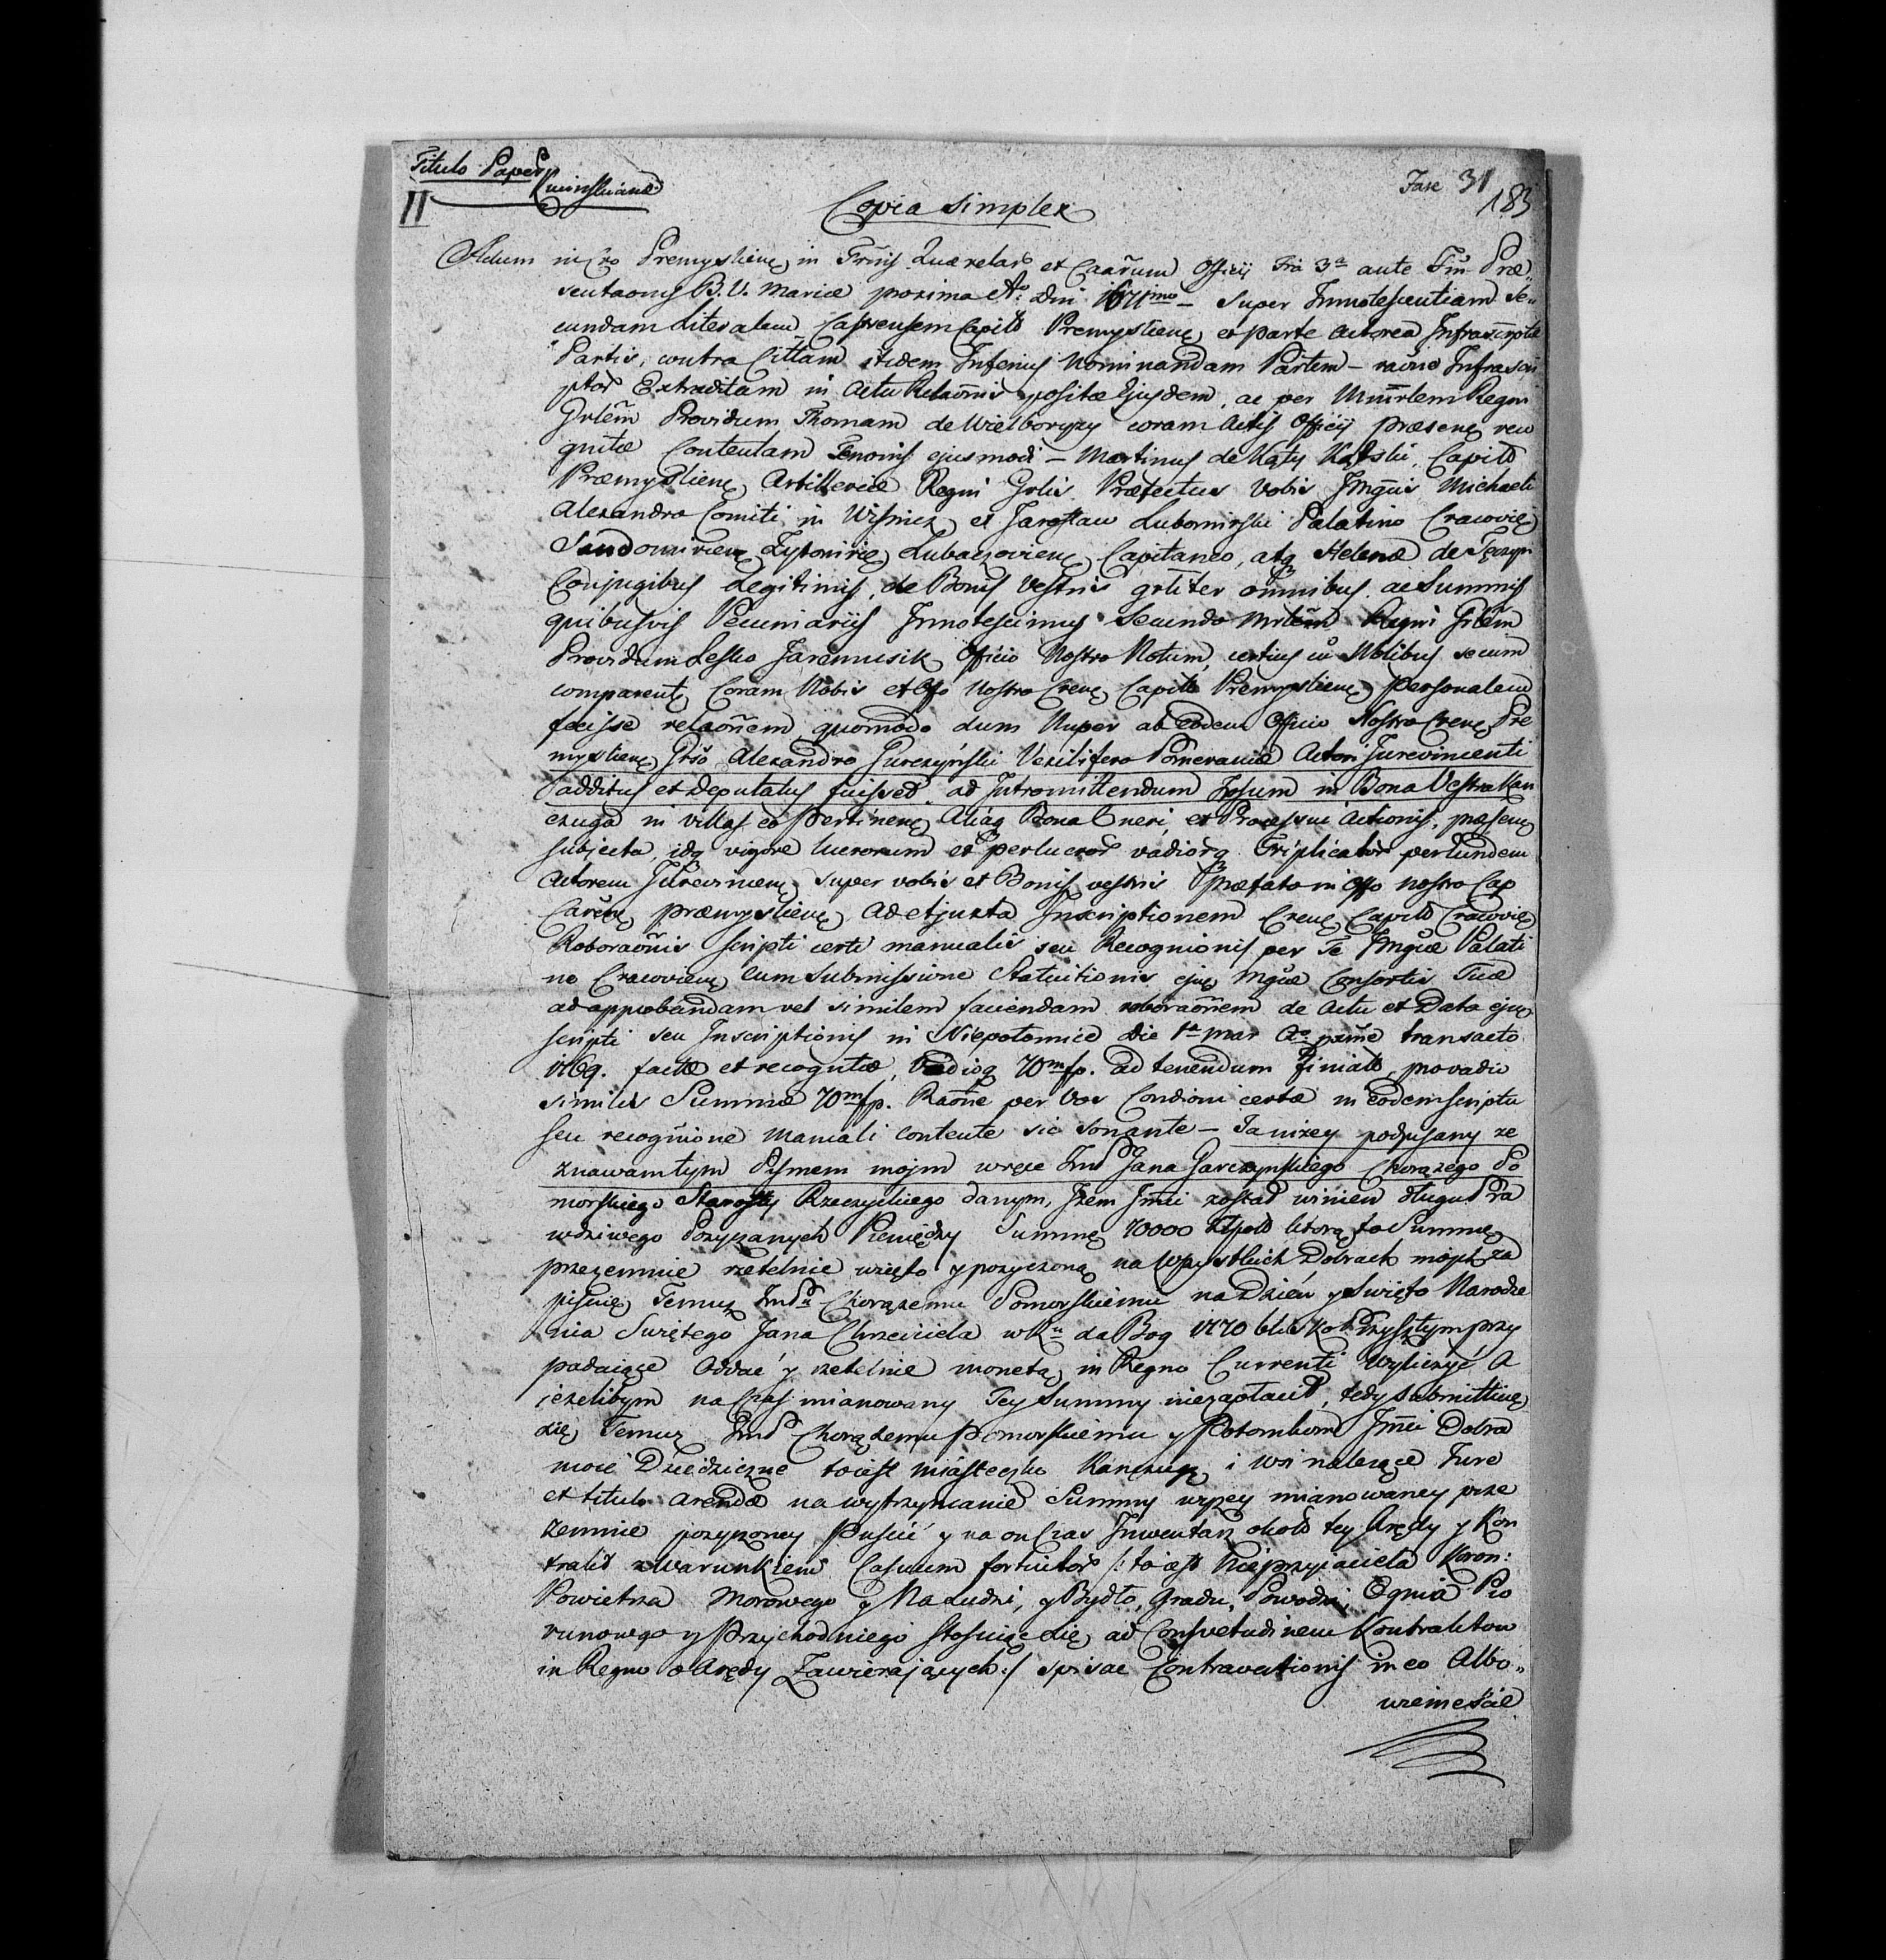 Titulo Paper Kuninskiana
II
Fasc 31
183
Copia simplex
Actum in Cro Premyslien, in Trnis Quærelar et Caarum Officij Fra 3a ante Ftu Præ„
sentaonis B. V. Mariæ proxima Ao Dni 1671mo – Super Innotescentiam Se„
cundam Literalem Castrensem Capitl Premyslien, ex parte Actorea Infrascriptæ
Partis, contra Cittam itidem Inferius Nominandam Partem – raone Infrascri
ptor Extraditam in Actu Relaonis positæ Ejusdem, ac per Mnrlem Regni
Grlem Providum Thomam de Wielboryzy coram Actis Officij præsen, reco
gnitæ Contentam Tenoris ejusmodi – Martinus de Kąty Kątski, Capitl
Præmyslien, Artilleriæ Regni Grlis Præfectus Vobis Imgnis Michaeli
Alexandro Comiti in Wisnicz, et Jarosław Lubomirski Palatino Cracovie,
Sandomirien, Zytomirie, Lubaczovien, Capitaneo, atq Helenæ de Tęczyn
Conjugibus Legitimis, de Bonis Vestris grliter omnibus ac Summis
quibusvis Pecuniarijs Innotescimus Secundo Mrlem Regni Grlem
Providum Lesko Jaremusik, Officio Nostro Notum, certius cu Nolibus secum
comparent, Coram Nobis et Offo Nostro Cren, Capitl Premyslien, personalem
fecisse relaonem quomodo dum Nuper ab eodem Officio Nostro Cren, Pre
myslien, Grso Alexandro Gurczyński Vexilifero Pomeraniæ Actori Jurevincenti
additus et Deputatus fuisset ad Intromittendum Ipsum in Bona Vestra Kan
czuga in villas eo pertinen, Aliáq Bona Oneri, et Processui Actionis, præsen,
subjecta, idq vigore lucrorum et perlucror vadiorq Triplicator per Eundem
Actorem Jurevincen, super vobis et Bonis vestris præfato in Offo nostro Cap
Caren, præmyslien, Ad et juxta Inscriptionem Cren, Capitl Cracovie,
Roboraonis scripti certi manualis seu Recognionis per Te Imgne Palati
no Cracovien, cum submissione Statuitionis ejus Mgnæ Consortis Tuæ
ad approbandam vel similem faciendam roboraonem de Actu et Data ejus
scripti seu Inscriptionis in Niepołomice Die 1a Mar Ao prme transacto
1769. factæ et recognitæ, Vadioq 70m fp. ad tenendum finiat, pro vadio
similis Summæ 70m fp. Raone per Vos Condioni certæ in eodem scripto
seu recognione manuali contente sic sonante – Ja niżey podpisany ze
znawam tym Pismem mojm wręce Jmd Jana Garczynskiego Chorązego Po
morskiego Starosty Rzeczyckiego danym, Jzem Jmci został winien długu Pra
wdziwego Pozyczanych Pieniędzy Summę 70000 Złpold ktorą to Summę
przezemnie rzetelnie wzięto y pozyczoną na Wszystkich Dobrach mojch za
pisuię Temuz Jmd Chorązemu Pomorskiemu na Dzień y Swięto Narodze
nia Swiętego Jana Chrzciciela w Ru da Bog 1770 blisko Przyszłym przy
padaiące Oddać y rzetelnie monetą in Regno Currenti Wyliczyć A
iezelibym na Czas mianowany Tey Summy niezapłacił, tedy submittuię
się Temuz Jmd Chorązemu Pomorskiemu y Potomkom Jmci Dobra
moie Dziedziczne toiest Miasteczko Kanczugę i wsi nalezące Jure
et titulo arendæ na wytrzymanie Summy wyzey mianowaney prze
zemnie pozyczoney puscić y na on Czas Inwentarz około tey Arędy y Kon
trakt z Warunkiem Casuum fortuitor /: toiest Nieprzyjaciela Koron:
Powietrza Morowego y Na Ludzi, y Bydło, Gradu, Powodzi, Ognia Pio
runowego y Przychodniego stosuiąc się ad Consvetudinem Kontraktow
in Regno o Arędy Zawierających :/ spisac Contraventionis in eo Albo„
wzinescie